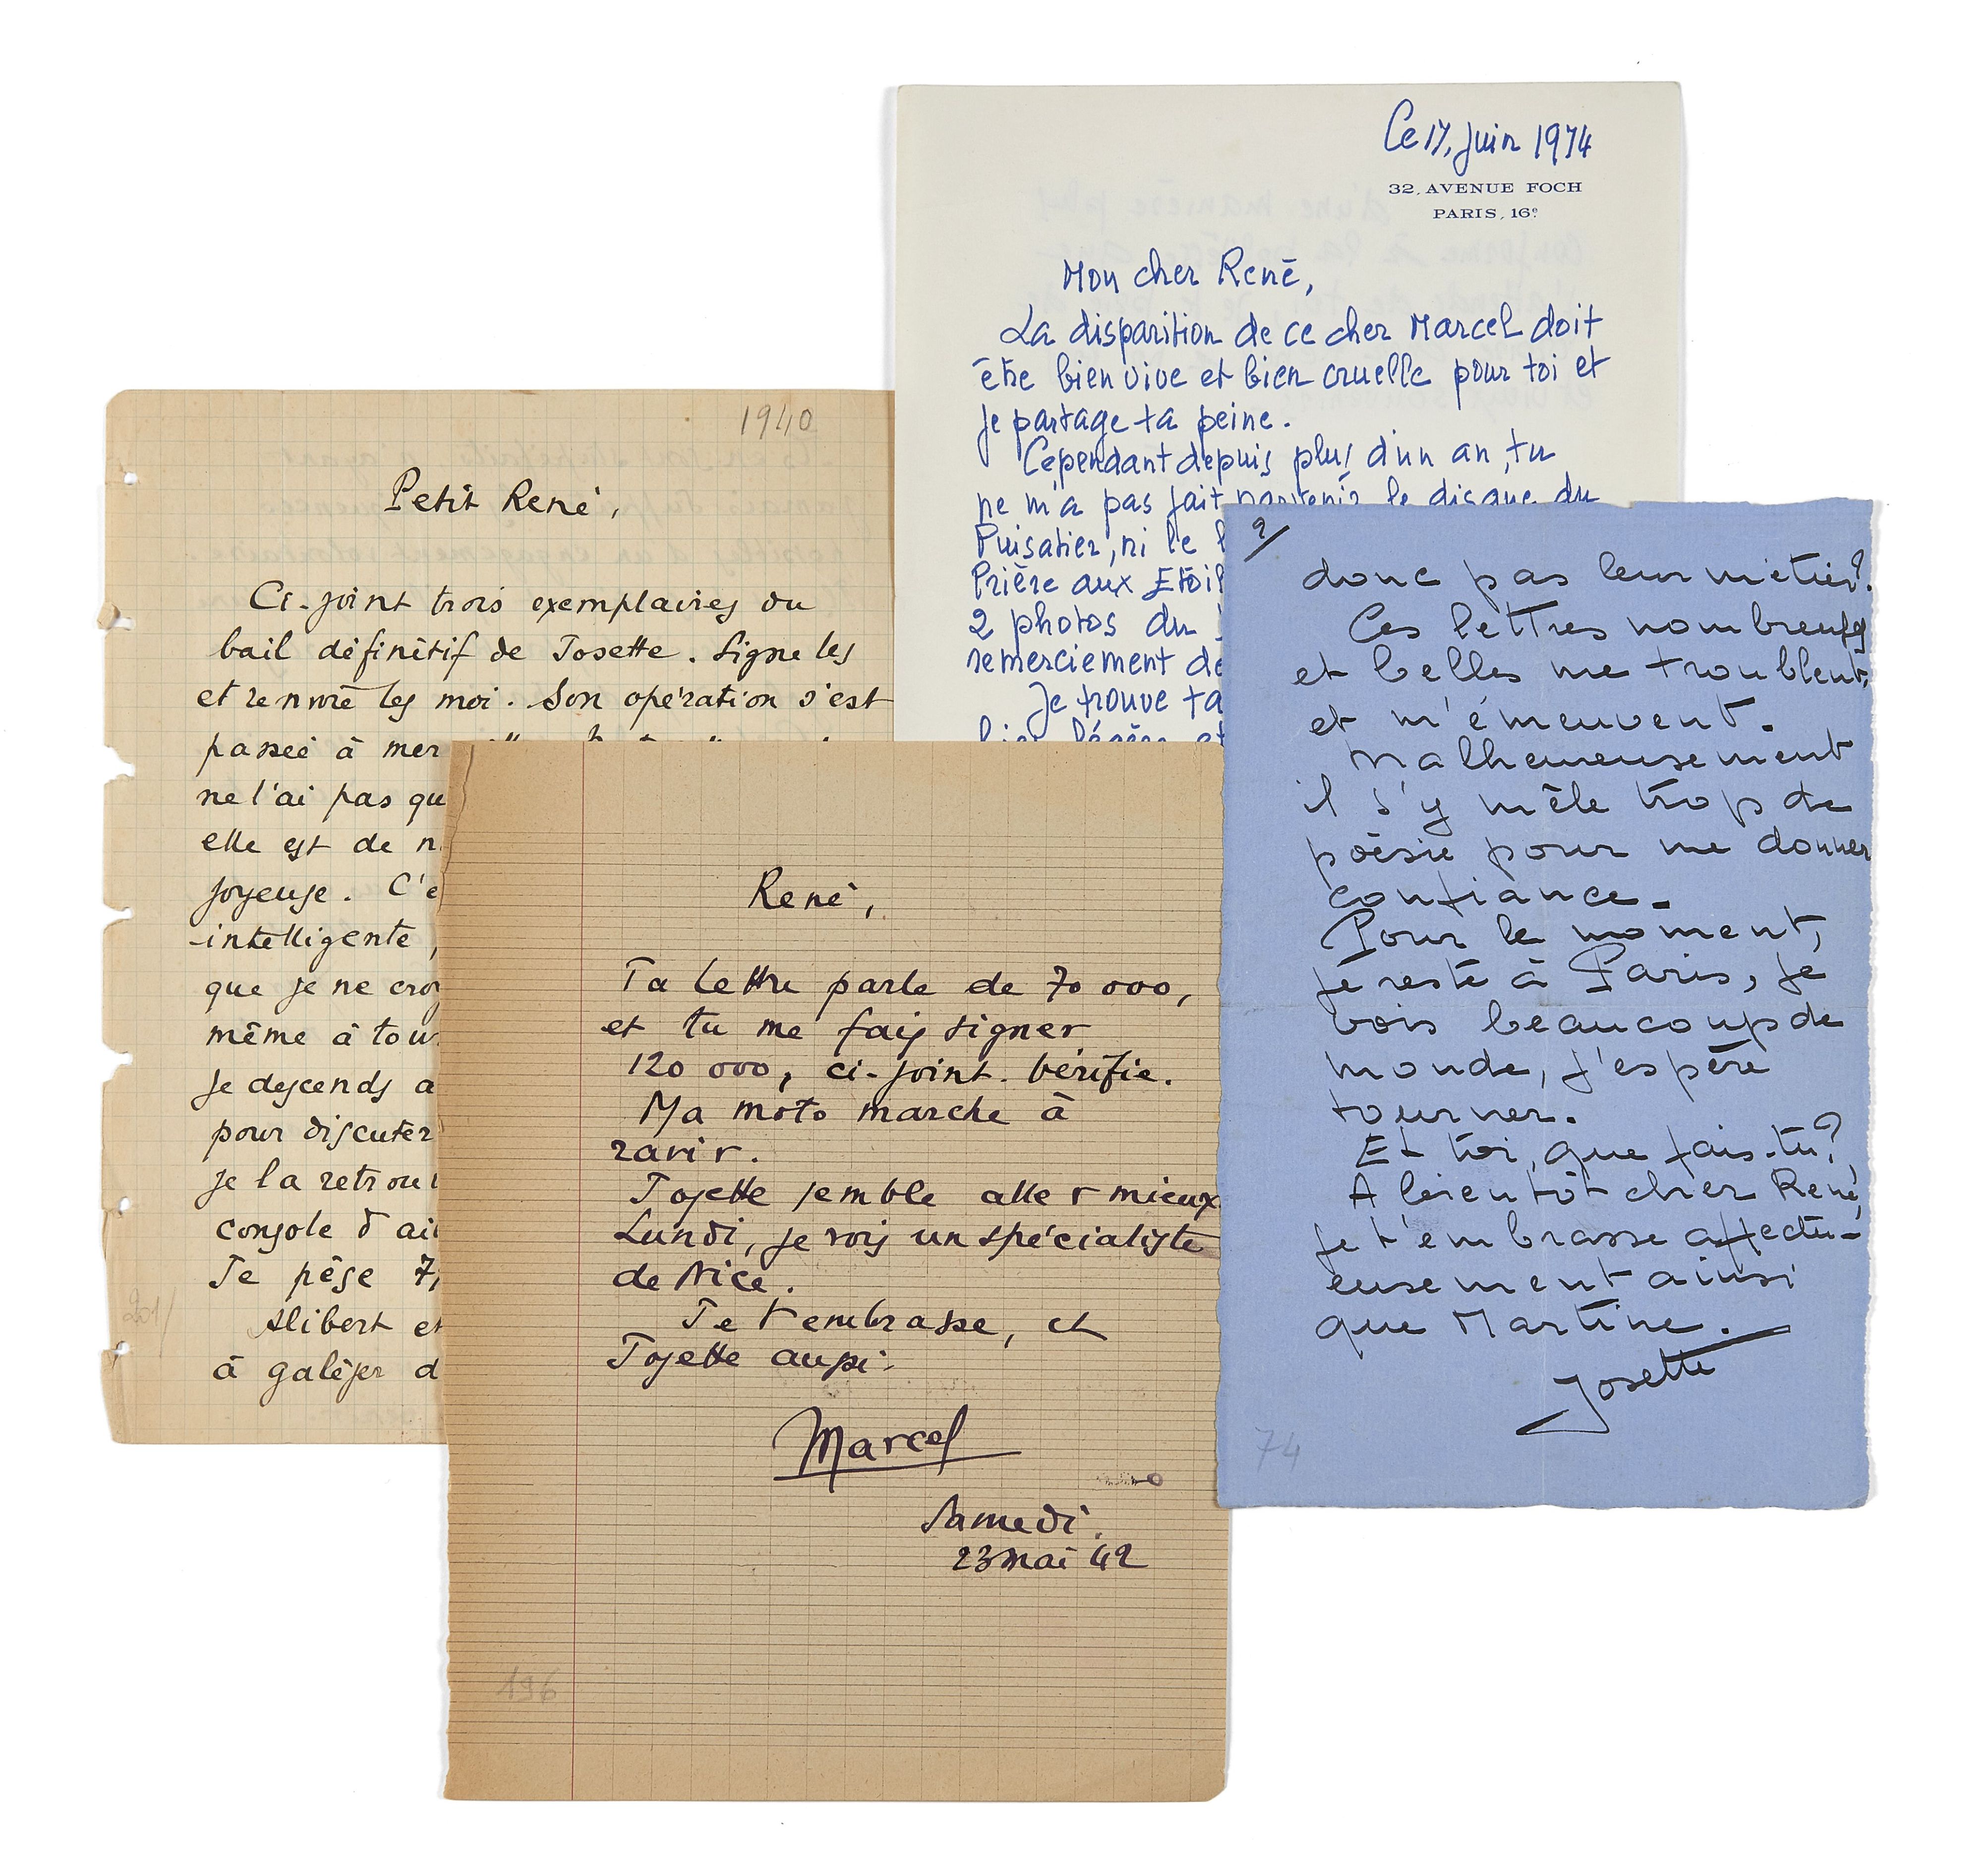 1940
Petit René,
Ci-joint trois exemplaires du
bail définitif de Josette. Signe les
et renvoie les moi. Son opération s'est
passée à mer
ne l'ai pas qu
elle est de n
joyeuse. C'e
intelligente,
que je ne cro
même à tou
je descends a
pour discuter
je la retrou
console d'ai
Je pèse 7
Alibert et
à galéjer d
201/
Ce 17, Juin 1974
32, AVENUE FOCH
PARIS, 16e
Mon cher René,
La disparition de ce cher Marcel doit
être bien vive et bien cruelle pour toi et
je partage ta peine.
Cependant depuis plus d'un an, tu
ne m'a pas fait parvenir le disque du
Puisatier, ni le
Prière aux Etoil
2 photos du
remerciement de
Je trouve ta
bien légère et
René,
Ta lettre parle de 70 000,
et tu me fais signer
120 000, ci-joint. Vérifie.
Ma moto marche à
ravir.
Josette semble aller mieux
Lundi, je vois un spécialiste
de Nice.
Je t'embrasse, et
Josette aussi.
Marcel
Samedi
23 mai 42
196
2/
donc pas leur métier?
Ces lettres nombreuses
et belles me troublent,
et m'émeuvent.
Malheureusement
il s'y mêle trop de
poésie pour me donner
confiance.
Pour le moment,
je reste à Paris, je
vois beaucoup de
monde, j'espère
tourner.
Et toi, que fais-tu?
A bientôt cher René,
je t'embrasse affectu-
eusement ainsi
que Martine.
Josette
74